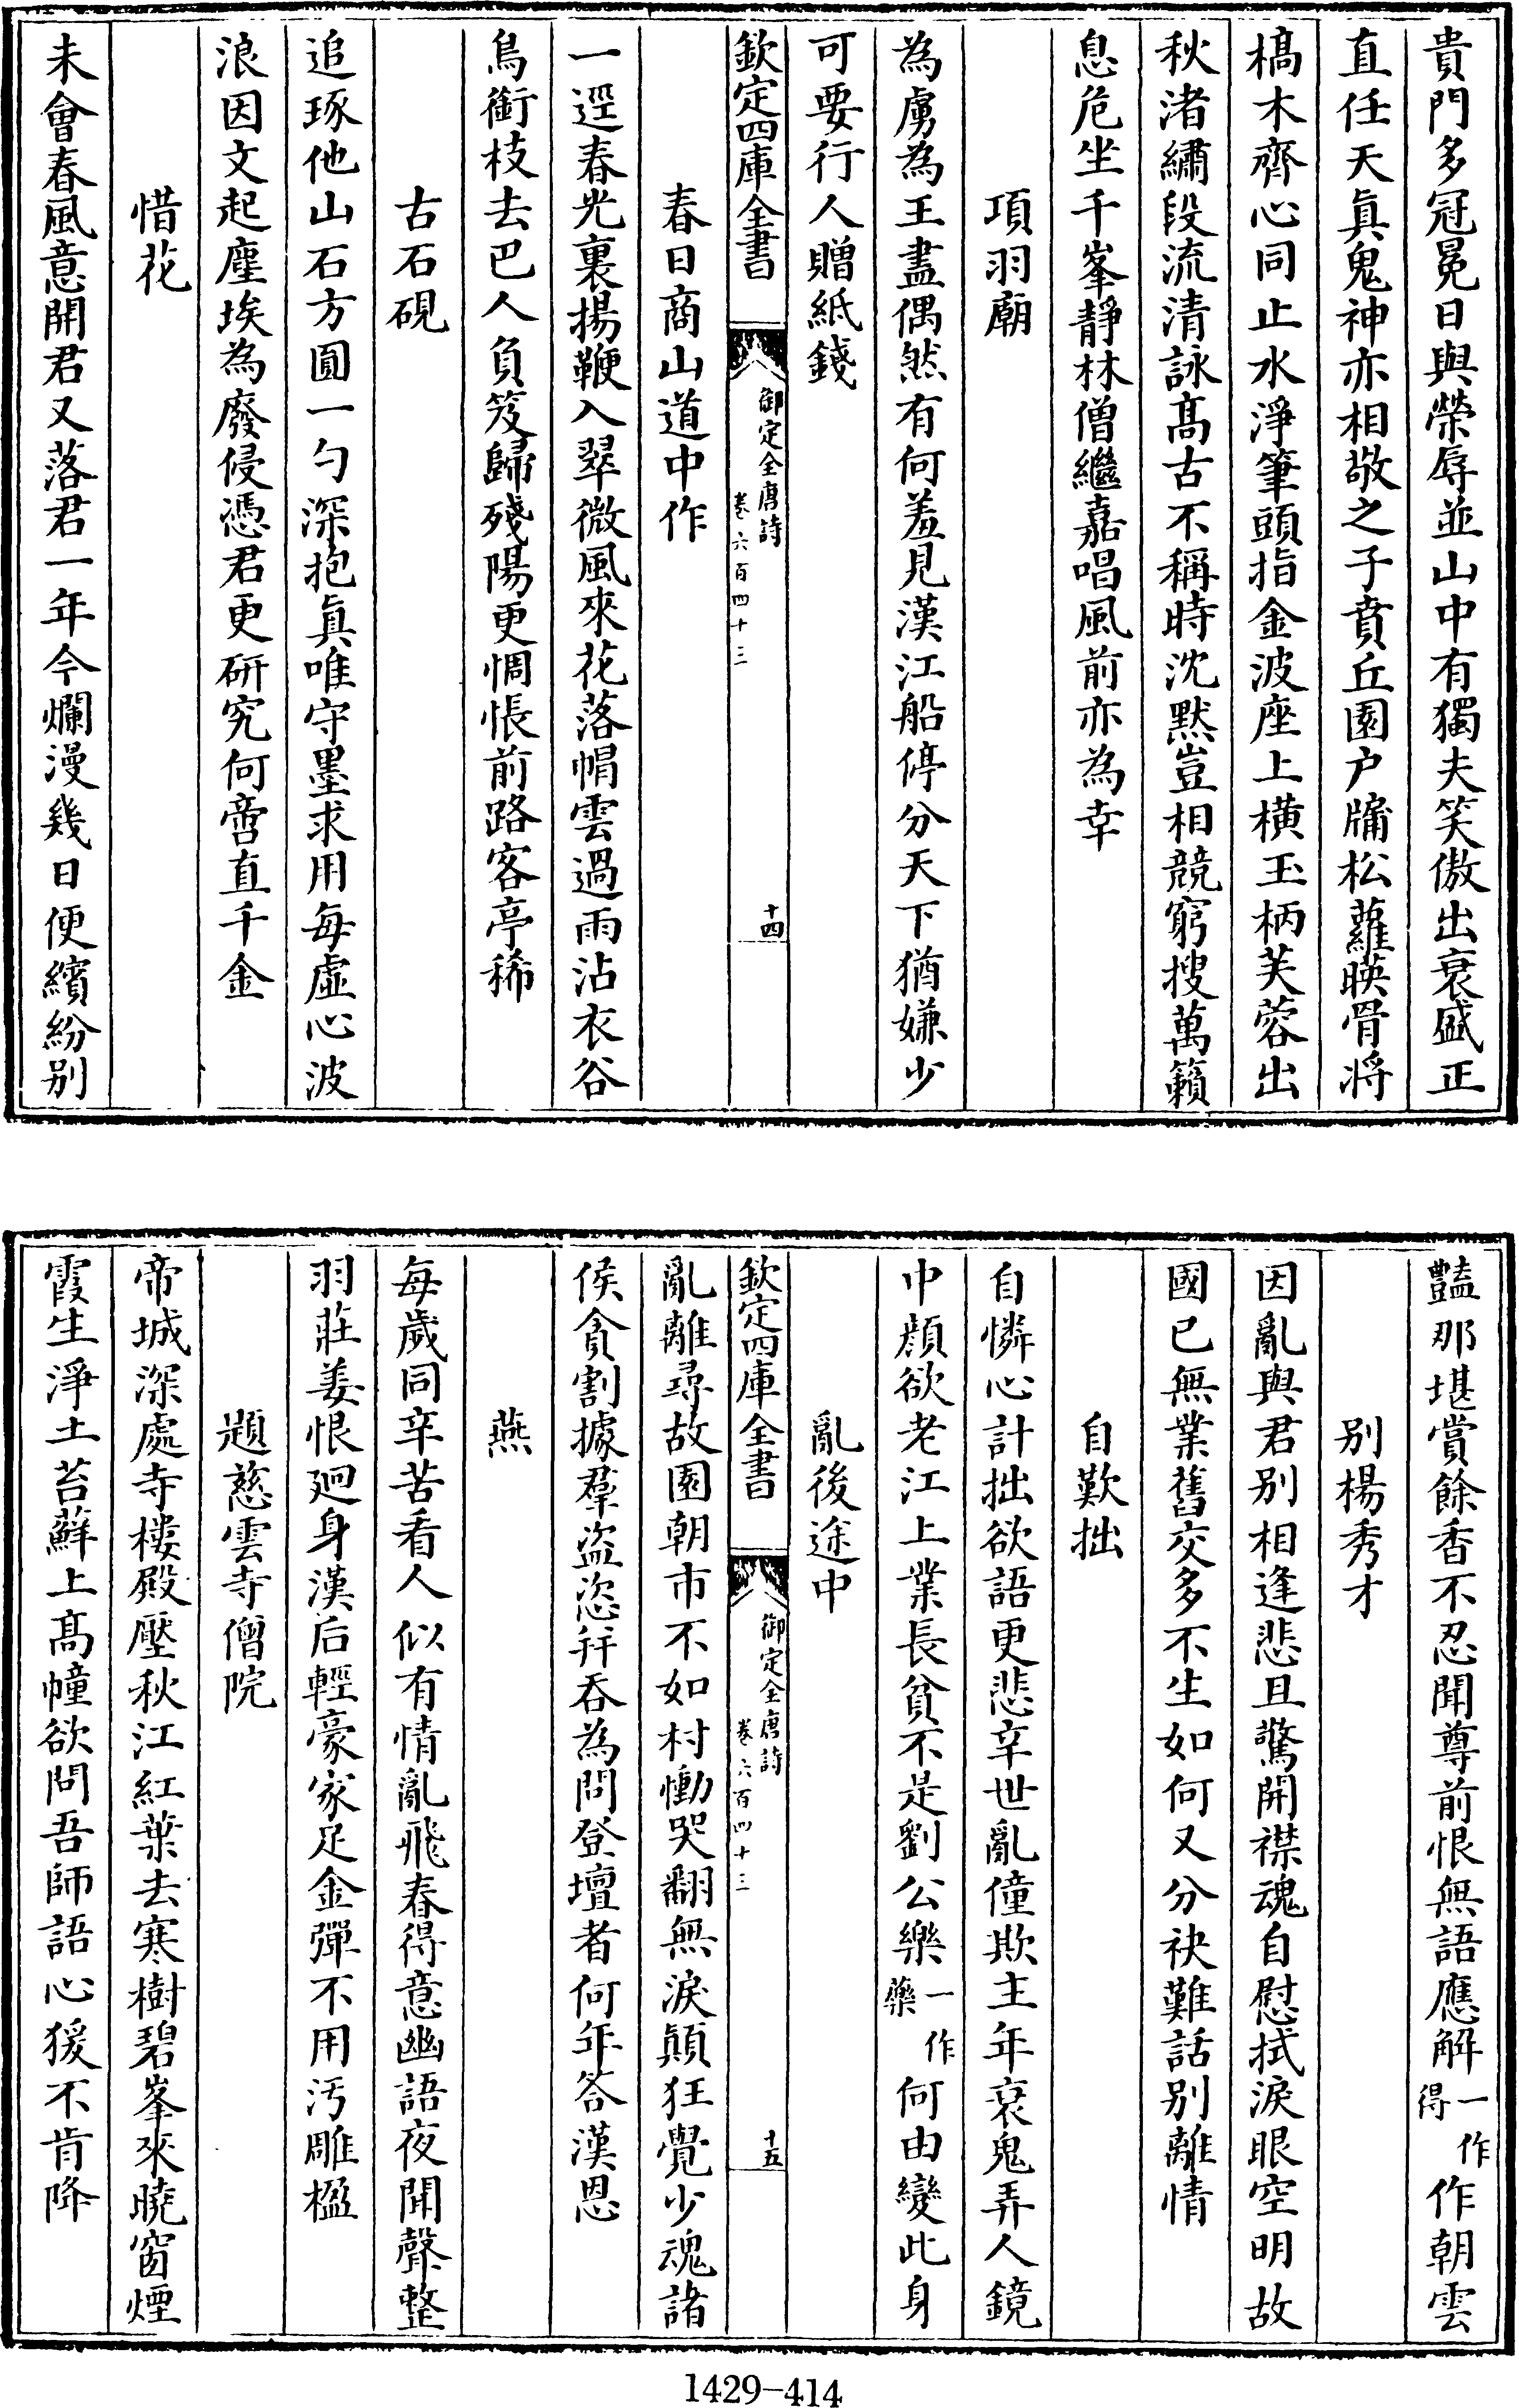 貴門多冠冕日與榮辱並山中有獨夫笑傲出衰盛正
直任天眞鬼神亦相敬之子賁丘園户牖松蘿暎骨将
槁木齊心同止水淨筆頭指金波座上橫玉柄芙蓉出
秋渚繡段流清詠髙古不稱時沈黙豈相競窮搜萬籟
息危坐千峯靜林僧繼嘉唱風前亦為幸
項羽廟
為虜為王盡偶然有何羞見漢江船停分天下猶嫌少
可要行人贈紙錢
欽定四庫全書
御定全唐詩
卷六百四十三
十四
春日商山道中作
一逕春光裏揚鞭入翠微風來花落帽雲過雨沾衣谷
鳥銜枝去巴人負笈歸殘陽更惆悵前路客亭稀
古石硯
追琢他山石方圓一勺深抱眞唯守墨求用每虛心波
浪因文起塵埃為廢侵憑君更研究何啻直千金
惜花
未會春風意開君又落君一年今爛漫幾日便繽紛别
豔那堪賞餘香不忍聞尊前恨無語應解一作得作朝雲
别楊秀才
因亂與君别相逢悲且驚開襟魂自慰拭淚眼空明故
國已無業舊交多不生如何又分袂難話别離情
自歎拙
自憐心計拙欲語更悲辛世亂僮欺主年衰鬼弄人鏡
中顔欲老江上業長貧不是劉公樂一作藥何由變此身
亂後途中
欽定四庫全書
御定全唐詩
卷六百四十三
十五
亂離尋故園朝市不如村慟哭翻無淚顛狂覺少魂諸
侯貪割據羣盗恣并吞為問登壇者何年答漢恩
燕
每歲同辛苦看人似有情亂飛春得意幽語夜聞聲整
羽莊姜恨廻身漢后輕豪家足金彈不用汚雕楹
題慈雲寺僧院
帝城深處寺樓殿壓秋江紅葉去寒樹碧峯來曉窗煙
霞生淨土苔蘚上髙幢欲問吾師語心猨不肯降
1429-414